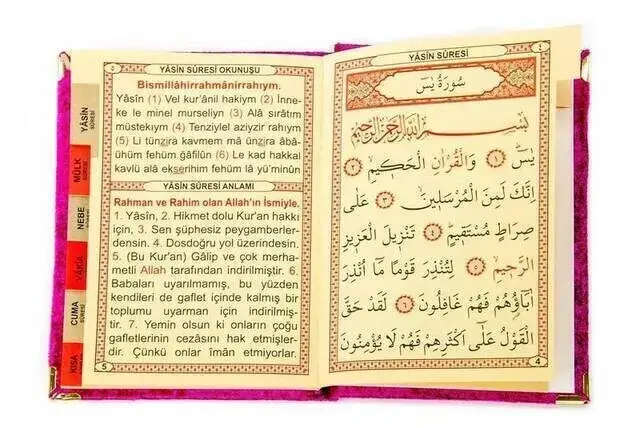 YÂSÎN SÛRESİ
٤
سُورَةُ يٰسٓ
بِسْمِ اللّٰهِ الرَّحْمٰنِ الرَّحِيمِ
يٰسٓ ﴿١﴾ وَالْقُرْاٰنِ الْحَكِيمِ ﴿٢﴾
اِنَّكَ لَمِنَ الْمُرْسَلِينَ ﴿٣﴾ عَلٰى
صِرَاطٍ مُسْتَقِيمٍ ﴿٤﴾ تَنْزِيلَ الْعَزِيزِ
الرَّحِيمِ ﴿٥﴾ لِتُنْذِرَ قَوْمًا مَٓا اُنْذِرَ
اٰبَٓاؤُهُمْ فَهُمْ غَافِلُونَ ﴿٦﴾ لَقَدْ حَقَّ
الْقَوْلُ عَلٰٓى اَكْثَرِهِمْ فَهُمْ لَا يُؤْمِنُونَ
4
YÂSÎN SÛRESİ OKUNUŞU
Bismillâhirrahmânirrahıym.
Yâsîn (1) Vel kur'ânil hakiym (2) İnne-
ke le minel murseliyn (3) Alâ sırâtım
müstekıym (4) Tenziylel aziyzir rahıym
(5) Li tünzira kavmem mâ ünzira âbâ-
ühüm fehüm gâfilûn (6) Le kad hakkal
kavlü alâ ekserihim fehüm lâ yü'minûn
YÂSÎN SÛRESİ ANLAMI
Rahman ve Rahim olan Allah'ın İsmiyle.
1. Yâsîn, 2. Hikmet dolu Kur'an hakkı
için, 3. Sen şüphesiz peygamberler-
densin. 4. Dosdoğru yol üzerindesin.
5. (Bu Kur'an) Gâlip ve çok merha-
metli Allah tarafından indirilmiştir. 6.
Babaları uyarılmamış, bu yüzden
kendileri de gaflet içinde kalmış bir
toplumu uyarman için indirilmiş-
tir. 7. Yemin olsun ki onların çoğu
gafletlerinin cezasını hak etmişler-
dir. Çünkü onlar îmân etmiyorlar.
5
YÂSÎN
SÛRESİ
MÜLK
SÛRESİ
NEBE
SÛRESİ
VÂKIA
CUMA
SÛRESİ
KISA